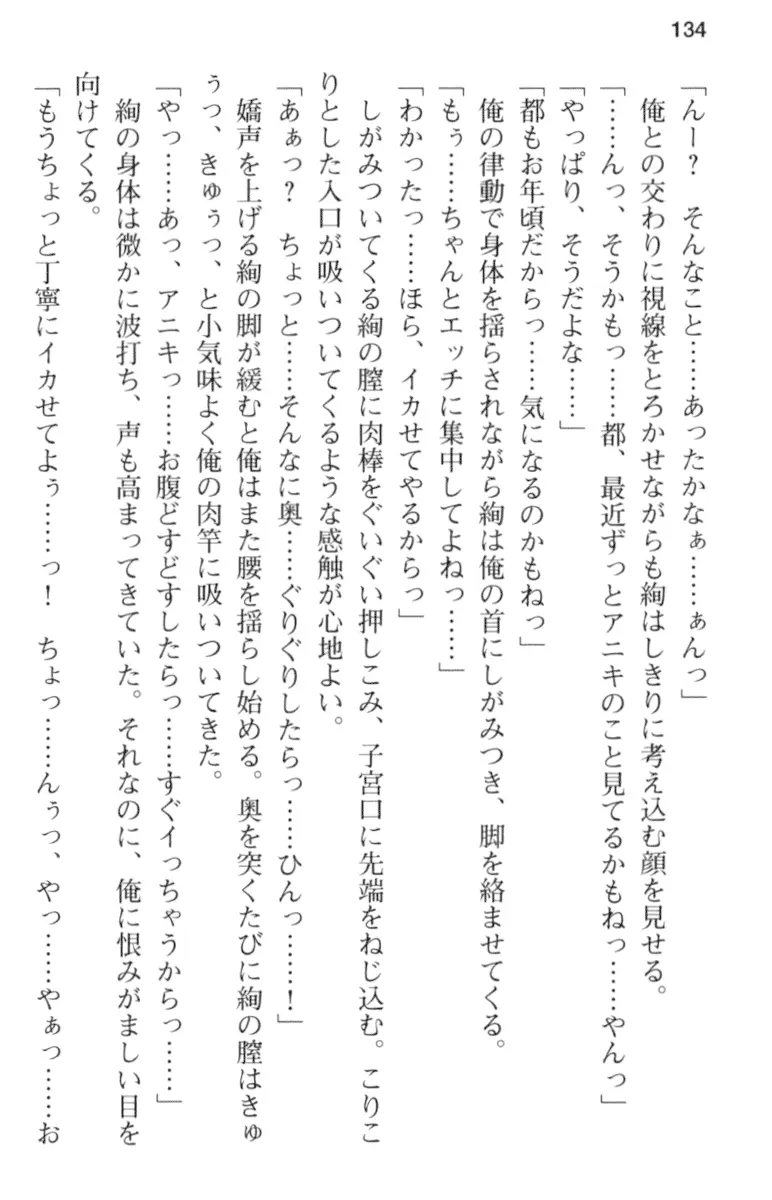 134
「んー？　そんなこと……あったかなぁ……ぁんっ」
俺との交わりに視線をとろかせながらも絢はしきりに考え込む顔を見せる。
「……んっ、そうかもっ……都、最近ずっとアニキのこと見てるかもねっ……やんっ」
「やっぱり、そうだよな……」
「都もお年頃だからっ……気になるのかもねっ」
俺の律動で身体を揺らされながら絢は俺の首にしがみつき、脚を絡ませてくる。
「もぅ……ちゃんとエッチに集中してよねっ……」
「わかったっ……ほら、イカせてやるからっ」
しがみついてくる絢の膣に肉棒をぐいぐい押しこみ、子宮口に先端をねじ込む。こりこ
りとした入口が吸いついてくるような感触が心地よい。
「あぁっ？　ちょっと……そんなに奥……ぐりぐりしたらっ……ひんっ……！」
嬌声を上げる絢の脚が緩むと俺はまた腰を揺らし始める。奥を突くたびに絢の膣はきゅ
ぅっ、きゅぅっ、と小気味よく俺の肉竿に吸いついてきた。
「やっ……あっ、アニキっ……お腹どすどすしたらっ……すぐイっちゃうからっ……」
絢の身体は微かに波打ち、声も高まってきていた。それなのに、俺に恨みがましい目を
向けてくる。
「もうちょっと丁寧にイカせてよぅ……っ！　ちょっ……んぅっ、やっ……やぁっ……お